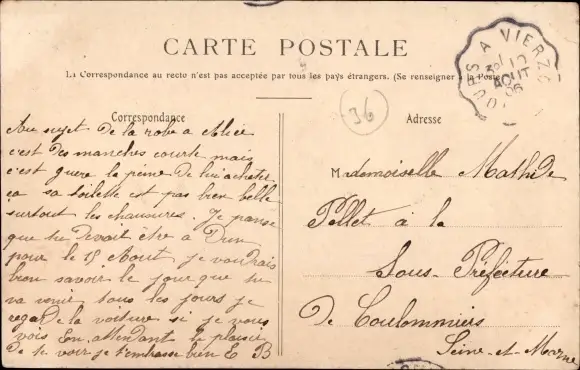 CARTE POSTALE
La Correspondance au recto n'est pas acceptée par tous les pays étrangers. (Se renseigner à la Poste
Correspondance
Au sujet de la robe a Alice
c'est des manches courte mais
c'est guere la peine de lui acheter
ca sa toilette est pas bien belle
surtout les chaussures. Je pense
que tu devait être a Dun
pour le 15 Aout je voudrais
bien savoir le jour que tu
va venir tous les jours je
regarde la voiture si je vous
vois En attendant le plaisir
de te voir je t'embrasse bien E B
36
Adresse
Mademoiselle Mathide
Pellet à la
Sous-Préfecture
De Coulommiers
Seine-et-Marne
A VIERZO
AOUT
06